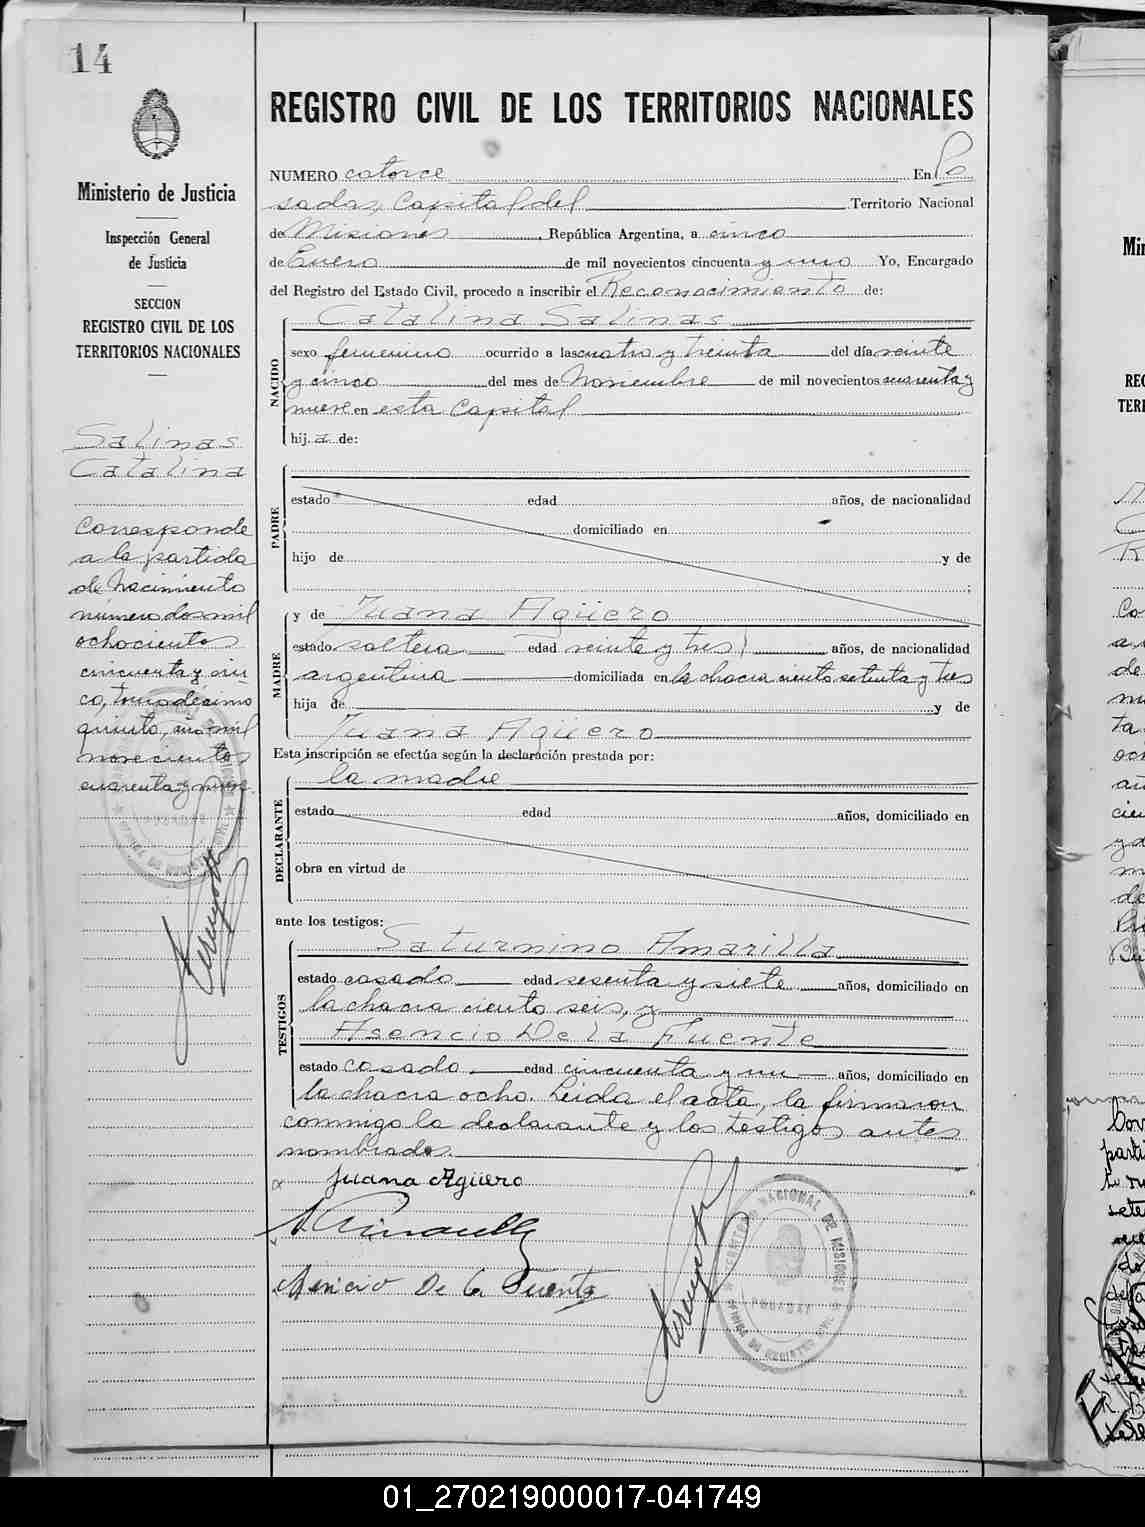 14
Ministerio de Justicia
Inspección General
de Justicia
SECCION
REGISTRO CIVIL DE LOS
TERRITORIOS NACIONALES
Salinas
Catalina
Corresponde
a la partida
de Nacimiento
número dos mil
ochocientos
cincuenta y cin
co, tomo décimo
quinto, año mil
novecientos
cuarenta y nueve.
REGISTRO CIVIL DE LOS TERRITORIOS NACIONALES
NUMERO catorce En Po
sadas, Capital del Territorio Nacional
de Misiones, República Argentina, a cinco
de Enero de mil novecientos cincuenta y uno Yo, Encargado
del Registro del Estado Civil, procedo a inscribir el Reconocimiento de:
Catalina Salinas
NACIDO
sexo femenino ocurrido a las cuatro y treinta del día veinte
y cinco del mes de Noviembre de mil novecientos cuarenta y
nueve en esta Capital
hij.a de:
PADRE
estado edad años, de nacionalidad
domiciliado en
hijo de y de
;
y de Juana Agüero
MADRE
estado soltera edad veinte y tres años, de nacionalidad
argentina domiciliada en la chacra ciento setenta y tres
hija de y de
Juana Agüero
Esta inscripción se efectúa según la declaración prestada por:
la madre
DECLARANTE
estado edad años, domiciliado en
obra en virtud de
ante los testigos:
Saturnino Amarilla
TESTIGOS
estado casado edad sesenta y siete años, domiciliado en
la chacra ciento seis, y
Asencio De la Fuente
estado casado edad cincuenta y un años, domiciliado en
la chacra ocho. Leida el acta, la firmaron
conmigo la declarante y los testigos antes
nombrados.
Juana Agüero
Asencio De la Fuente
01_270219000017-041749